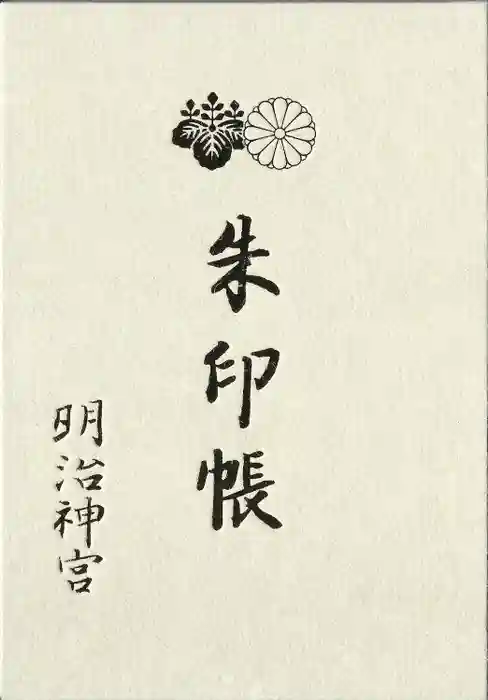 朱印帳
明治神宮